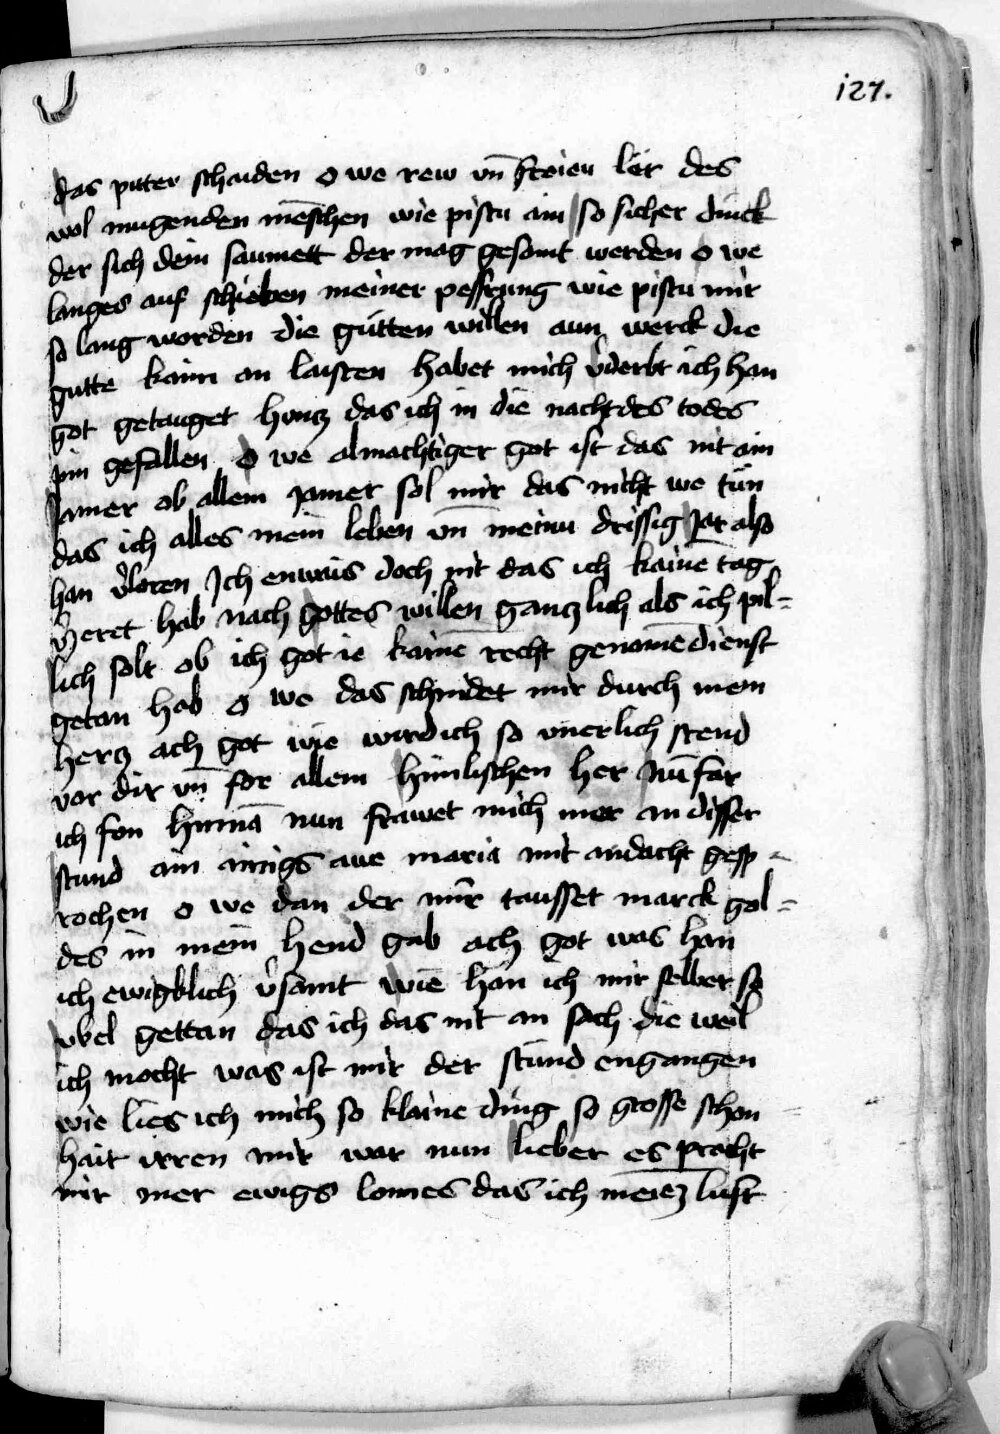 127.
das pitter schaiden o we rew vn̄ freien ler des
wol mugenden mēschen wie pistu ain so sicher dinck
der sich dein saumett der mag gesamt werden o we
langes auf schieben meiner pessrung wie pistu mir
so lang worden die gůtten willen aun werck die
gutte kaim an laisten habet mich v̓derbt ich han
got getauget huntz das ich in die nacht des todes
pin gefallen o we almachtiger got ist das nit ain
Jamer ob allem jamer sol mir das nicht we tůn
das ich alles mein leben vn̄ meinu drissig Jar also
han v̓loren Ich enwais doch nit das ich kainē tag
v̓zeret hab nach gottes willen gantzlich als ich pil=
lich solt ob ich got ie kainē recht genomē dienst
getan hab o we das schnidet mir durch mein
hertz ach got wie wird ich so vnerlich stend
vor dir vn̄ for allem himlischen her Nūn far
ich fon hinnā nun frawet mich mer an disser
stund ain ainigs aue maria mit andacht gesp=
rochen o we dan der mir tausset marck gol=
des in mein hend gab ach got was han
ich ewigklich v̓samt wie han ich mir selber so
vbel gettan das ich das nit an sach die weil
ich mocht was ist mir der stůnd engangen
wie lies ich mich so klaine ding so grosse schon
hait irren mir war nun lieber es pracht
mir mer ewigs lones das ich meiez lust